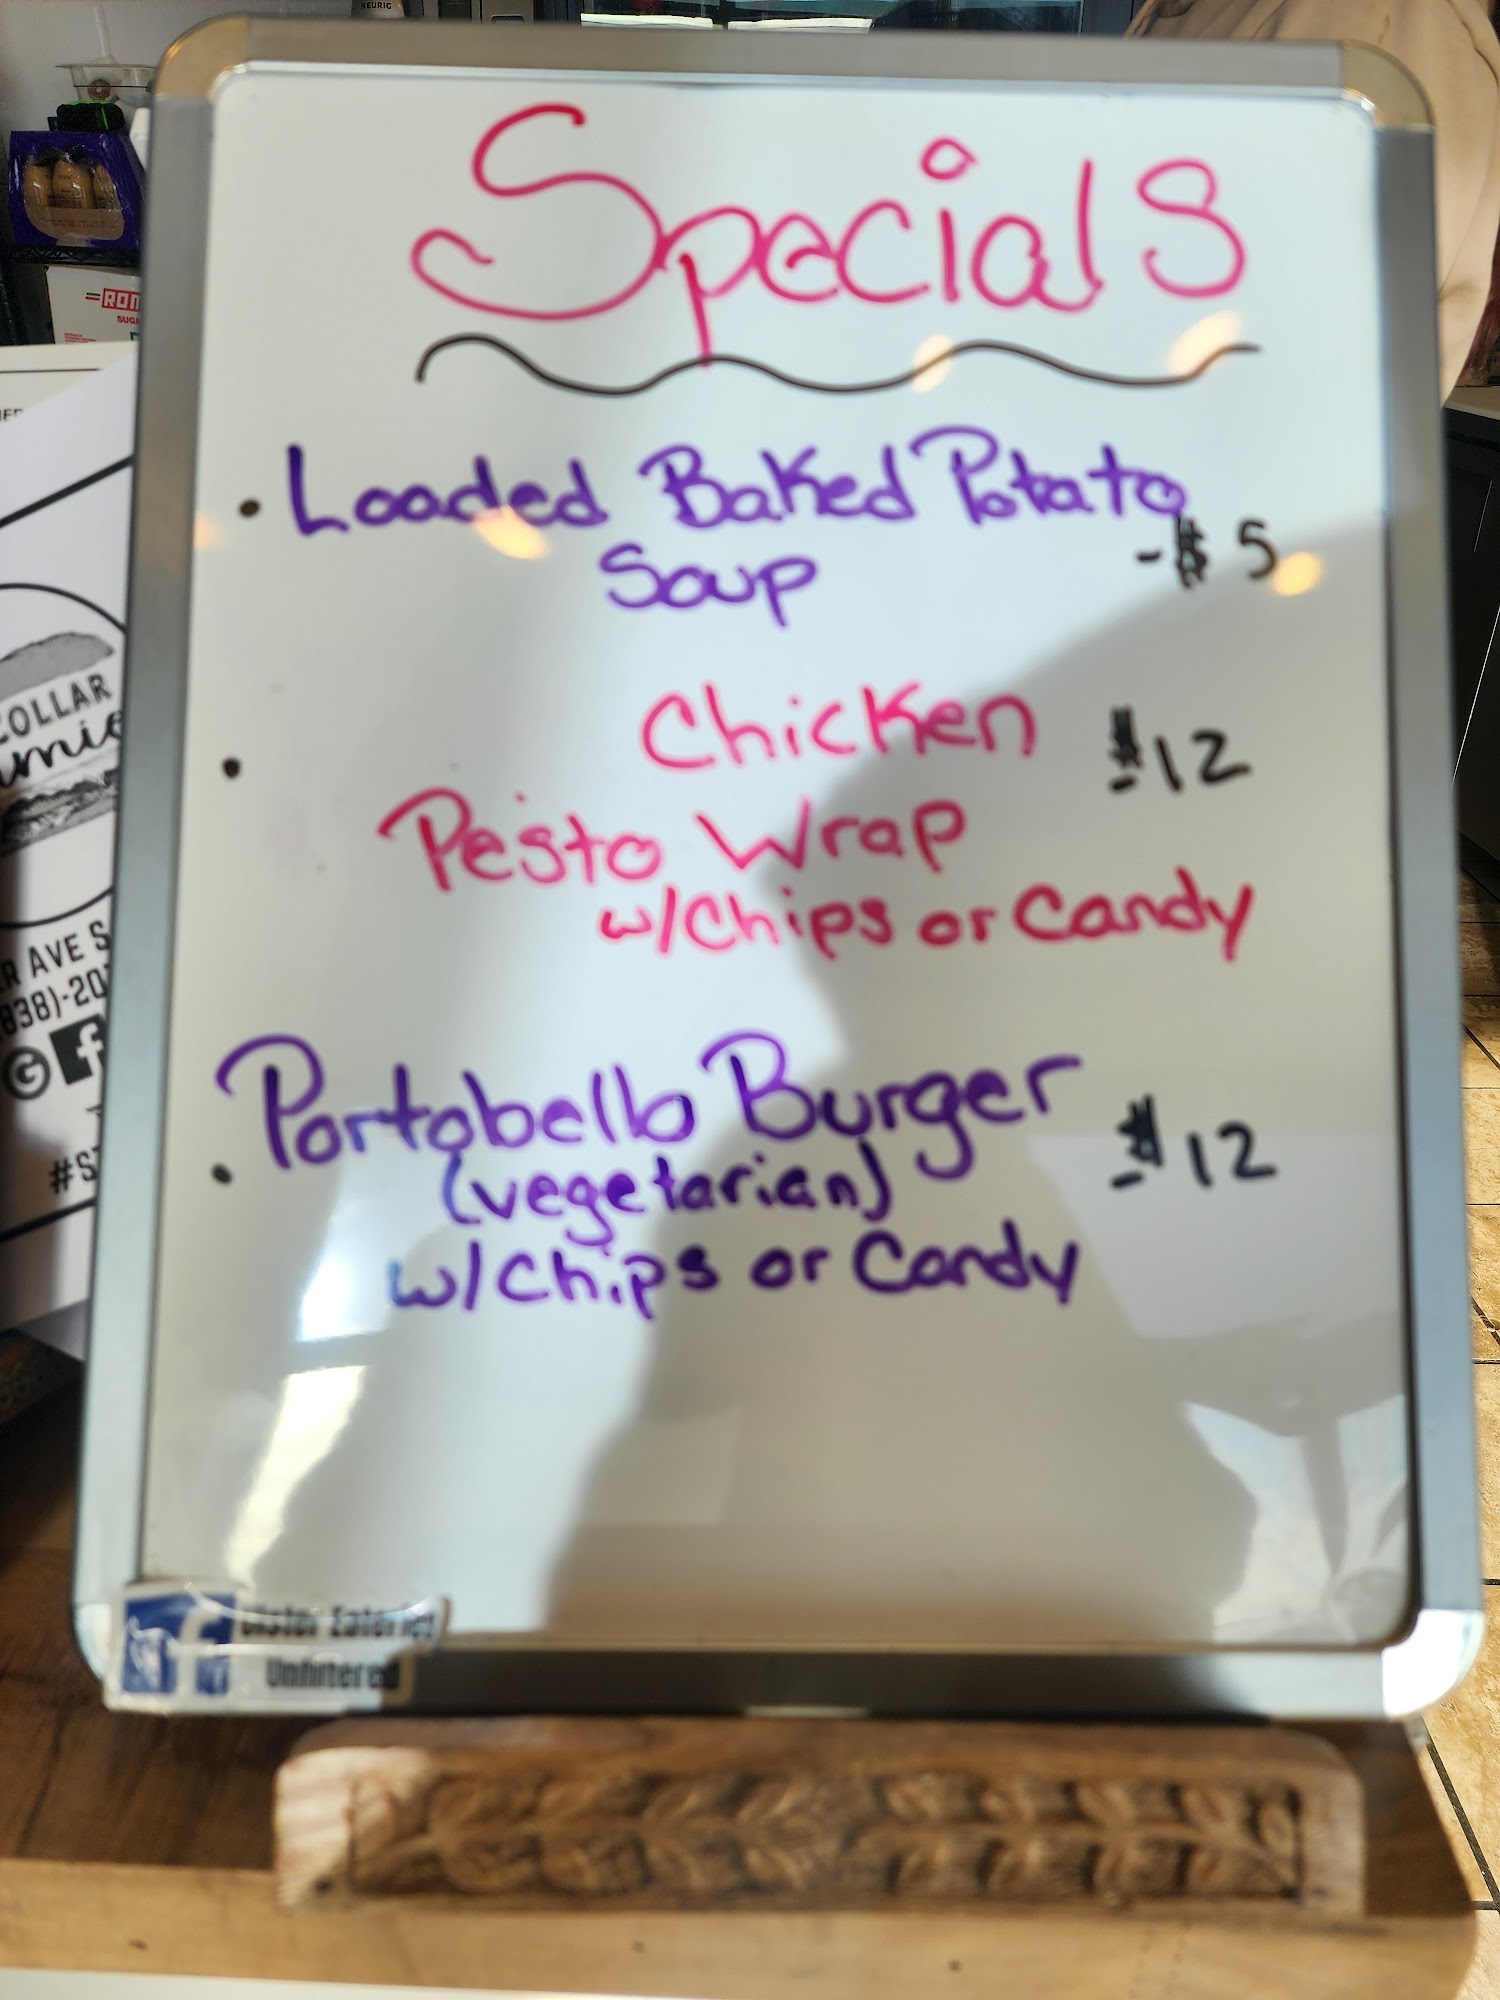 KEURIG
Specials
• Loaded Baked Potato
Soup -$5
• Chicken $12
Pesto Wrap
w/Chips or Candy
• Portobello Burger $12
(vegetarian)
w/Chips or Candy
COLLAR
AVE S
(838)-20
Ulster Eateries
Unfiltered